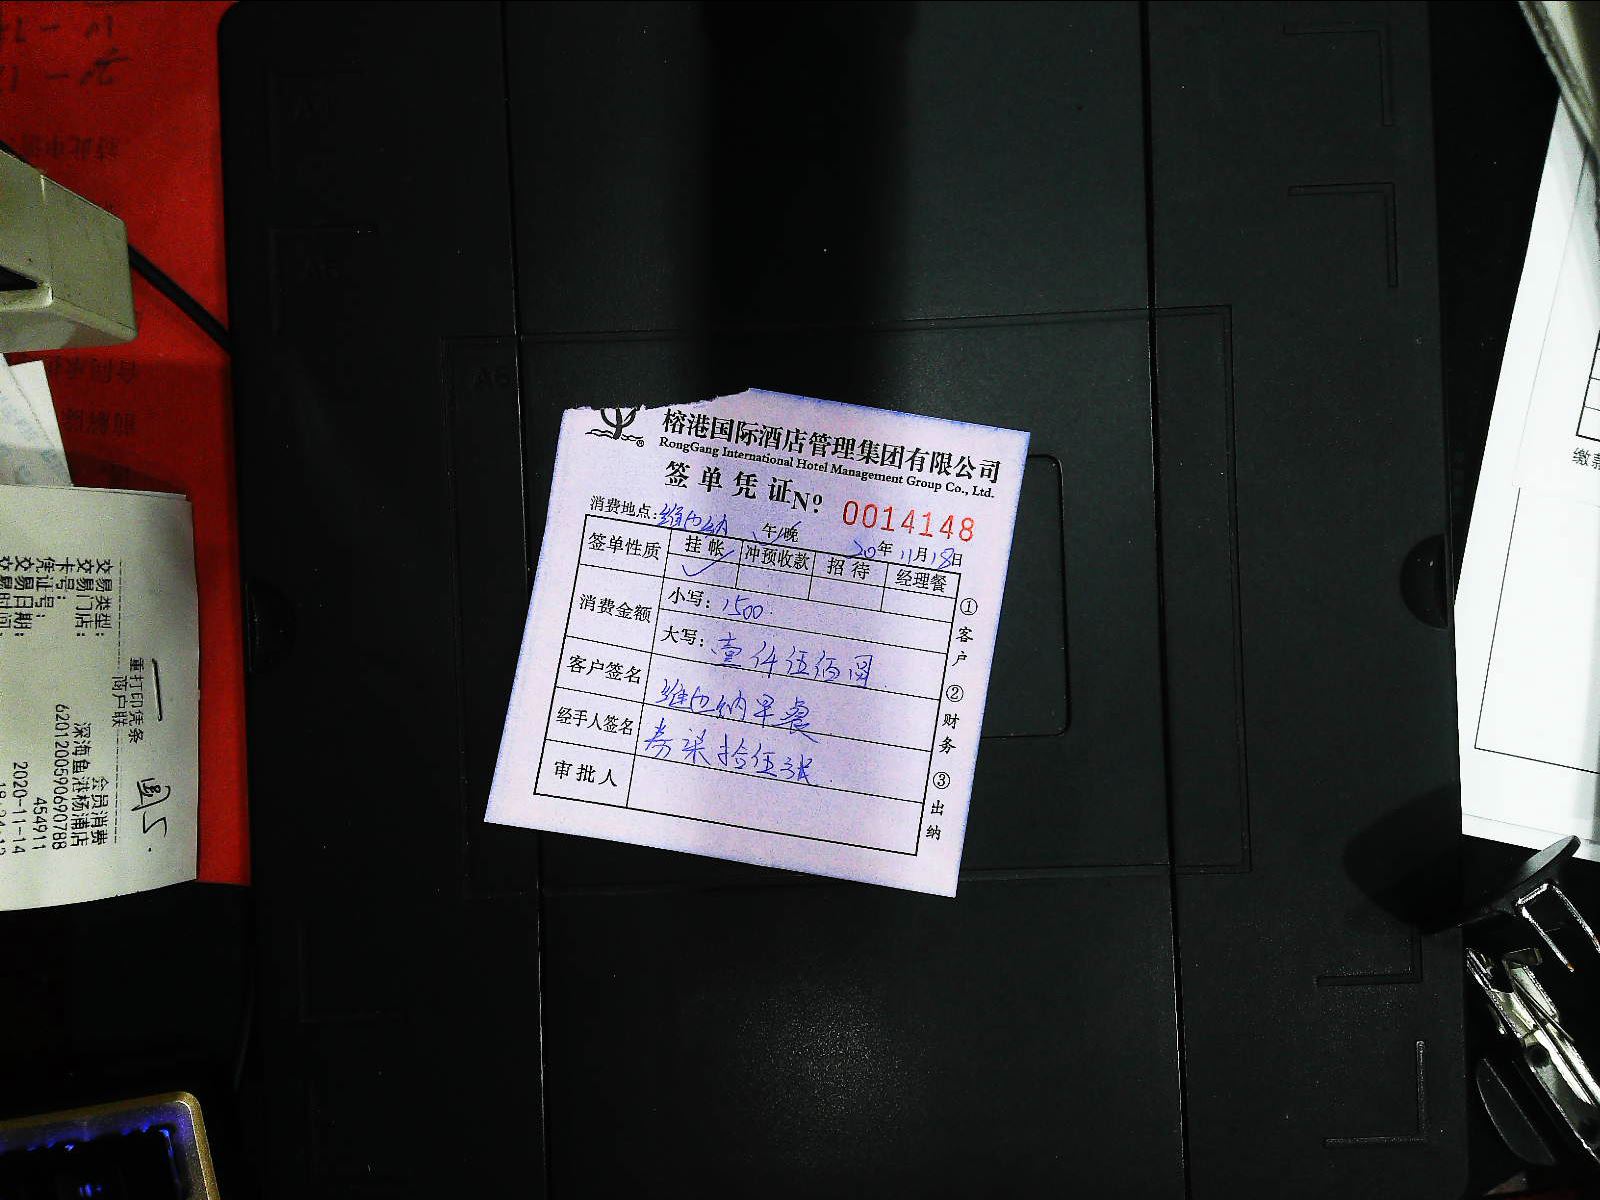 榕港国际酒店管理集团有限公司
RongGang International Hotel Management Group Co., Ltd.
签单凭证 Nº: 0014148
消费地点:维也纳 午/晚 20年11月18日
签单性质 挂帐 ✓ 冲预收款 招待 经理餐
消费金额 小写: 1500
大写: 壹仟伍佰圆
客户签名 维也纳早餐
经手人签名 券柒拾伍张
审批人
①客户 ②财务 ③出纳
A6
重打印凭条
商户联
交易类型: 会员消费
交易门店: 深海鱼港杨浦店
卡号: 6201200590690788
凭证号: 454911
交易日期: 2020-11-14
缴款